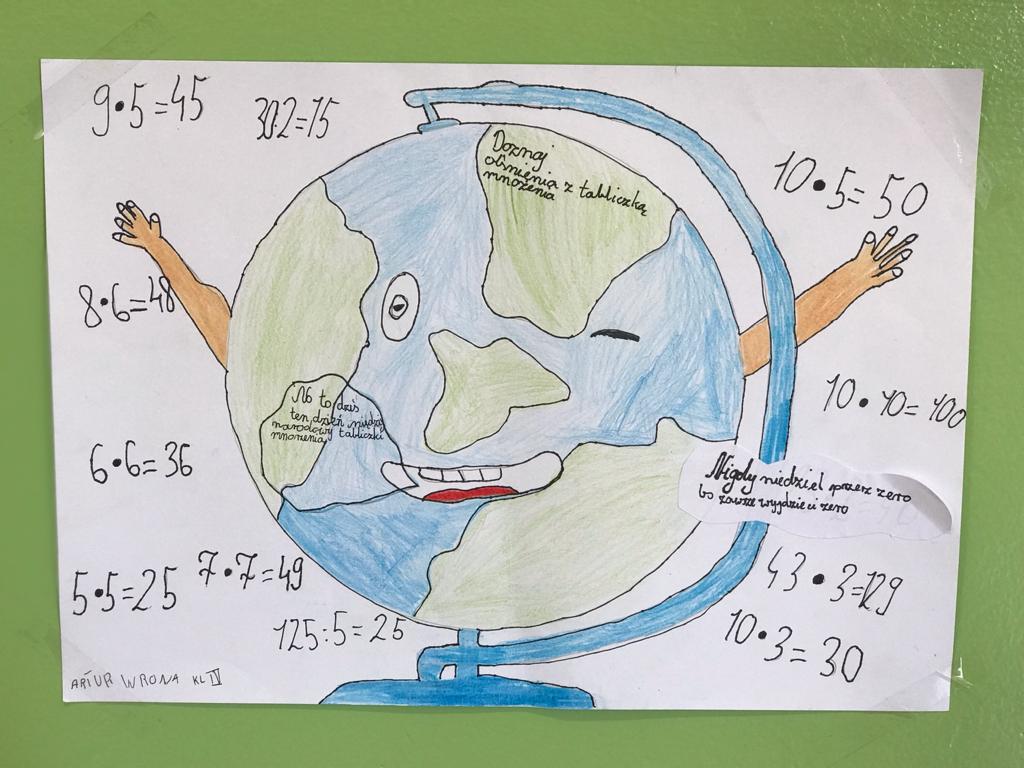 9•5=45
30:2=15
10•5=50
Doznaj
olśnienia z tabliczką
mnożenia
8•6=48
No to dziś
ten dzień między
narodowy tabliczki
mnożenia
10•10=100
6•6=36
Nigdy niedziel przez zero
bo zawsze wyjdzie ci zero
5•5=25
7•7=49
43•3=129
125:5=25
10•3=30
ARTUR WRONA KL IV